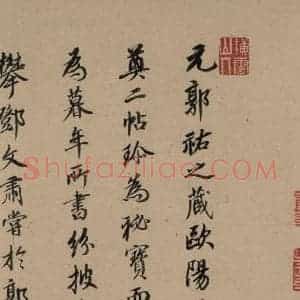 元郭祐之藏歐陽
奠二帖珍為秘寶而
為暮年所書紛披
攀鄧文肅嘗於郭
Shufaziliao.com